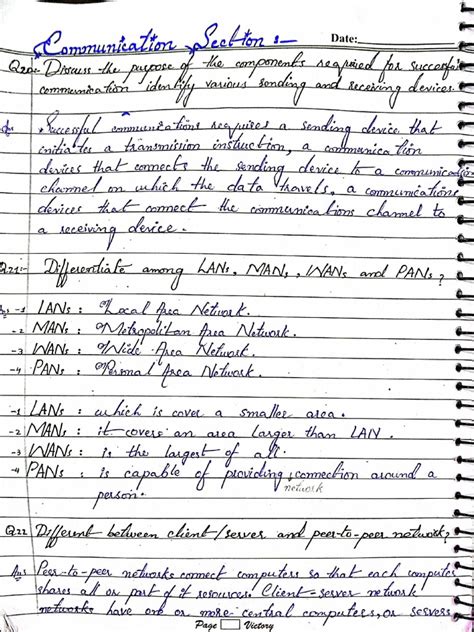 Communication Section :-
Date:
Q20:- Discuss the purpose of the components required for successful
communication identify various sending and receiving devices.
Ans Successful communications requires a sending device that
initiates a transmission instruction, a communication
devices that connects the sending device to a communication
channel on which the data travels, a communications
devices that connect the communications channel to
a receiving device.
Q21:- Differentiate among LANs, MANs, WANs and PANs?
Ans -1 LANs : Local Area Network.
-2 MANs : Metropolitan Area Network.
-3 WANs : Wide Area Network.
-4 PANs : Personal Area Network.
-1 LANs : which is cover a smaller area.
-2 MANs : it covers an area larger than LAN.
-3 WANs : is the largest of all.
-4 PANs : is capable of providing connection around a
network
person.
Q22 Different between client/server and peer-to-peer network?
Ans Peer-to-peer networks connect computers so that each computer
shares all or part of it resources. Client-server network
networks have one or more central computers, or servers
Page Victory